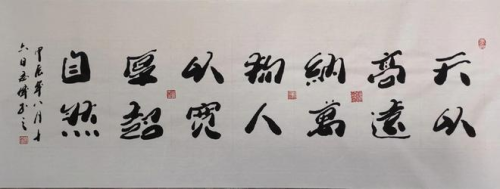 天以
高遠
納萬
物人
以寬
厚超
自然
甲辰年八月十
六日